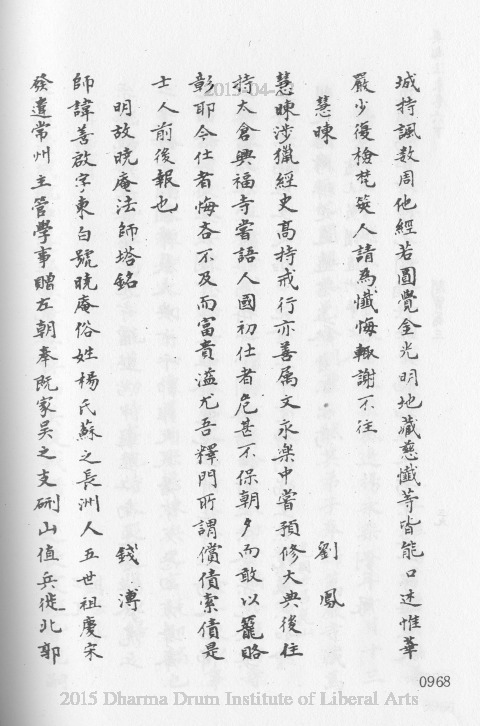 城持諷数周他經若圓覺金光明地藏慈懺等皆能口述惟華
嚴少復檢梵筴人請為懺悔輙謝不往
慧暕 劉鳳
慧暕涉獵經史髙持戒行亦善属文永樂中嘗預修大典後住
持太倉興福寺嘗語人國初仕者危甚不保朝夕而敢以簠賂
彰耶今仕者悔吝不及而富貴溢尤吾釋門所謂償債索債是
士人前後報也
明故曉庵法師塔銘 錢溥
師諱善啟字東白號曉庵俗姓楊氏蘇之長洲人五世祖慶宋
發遣常州主管學事贈左朝奉既家吴之支硎山值兵徙北郭
0968
2015 Dharma Drum Institute of Liberal Arts